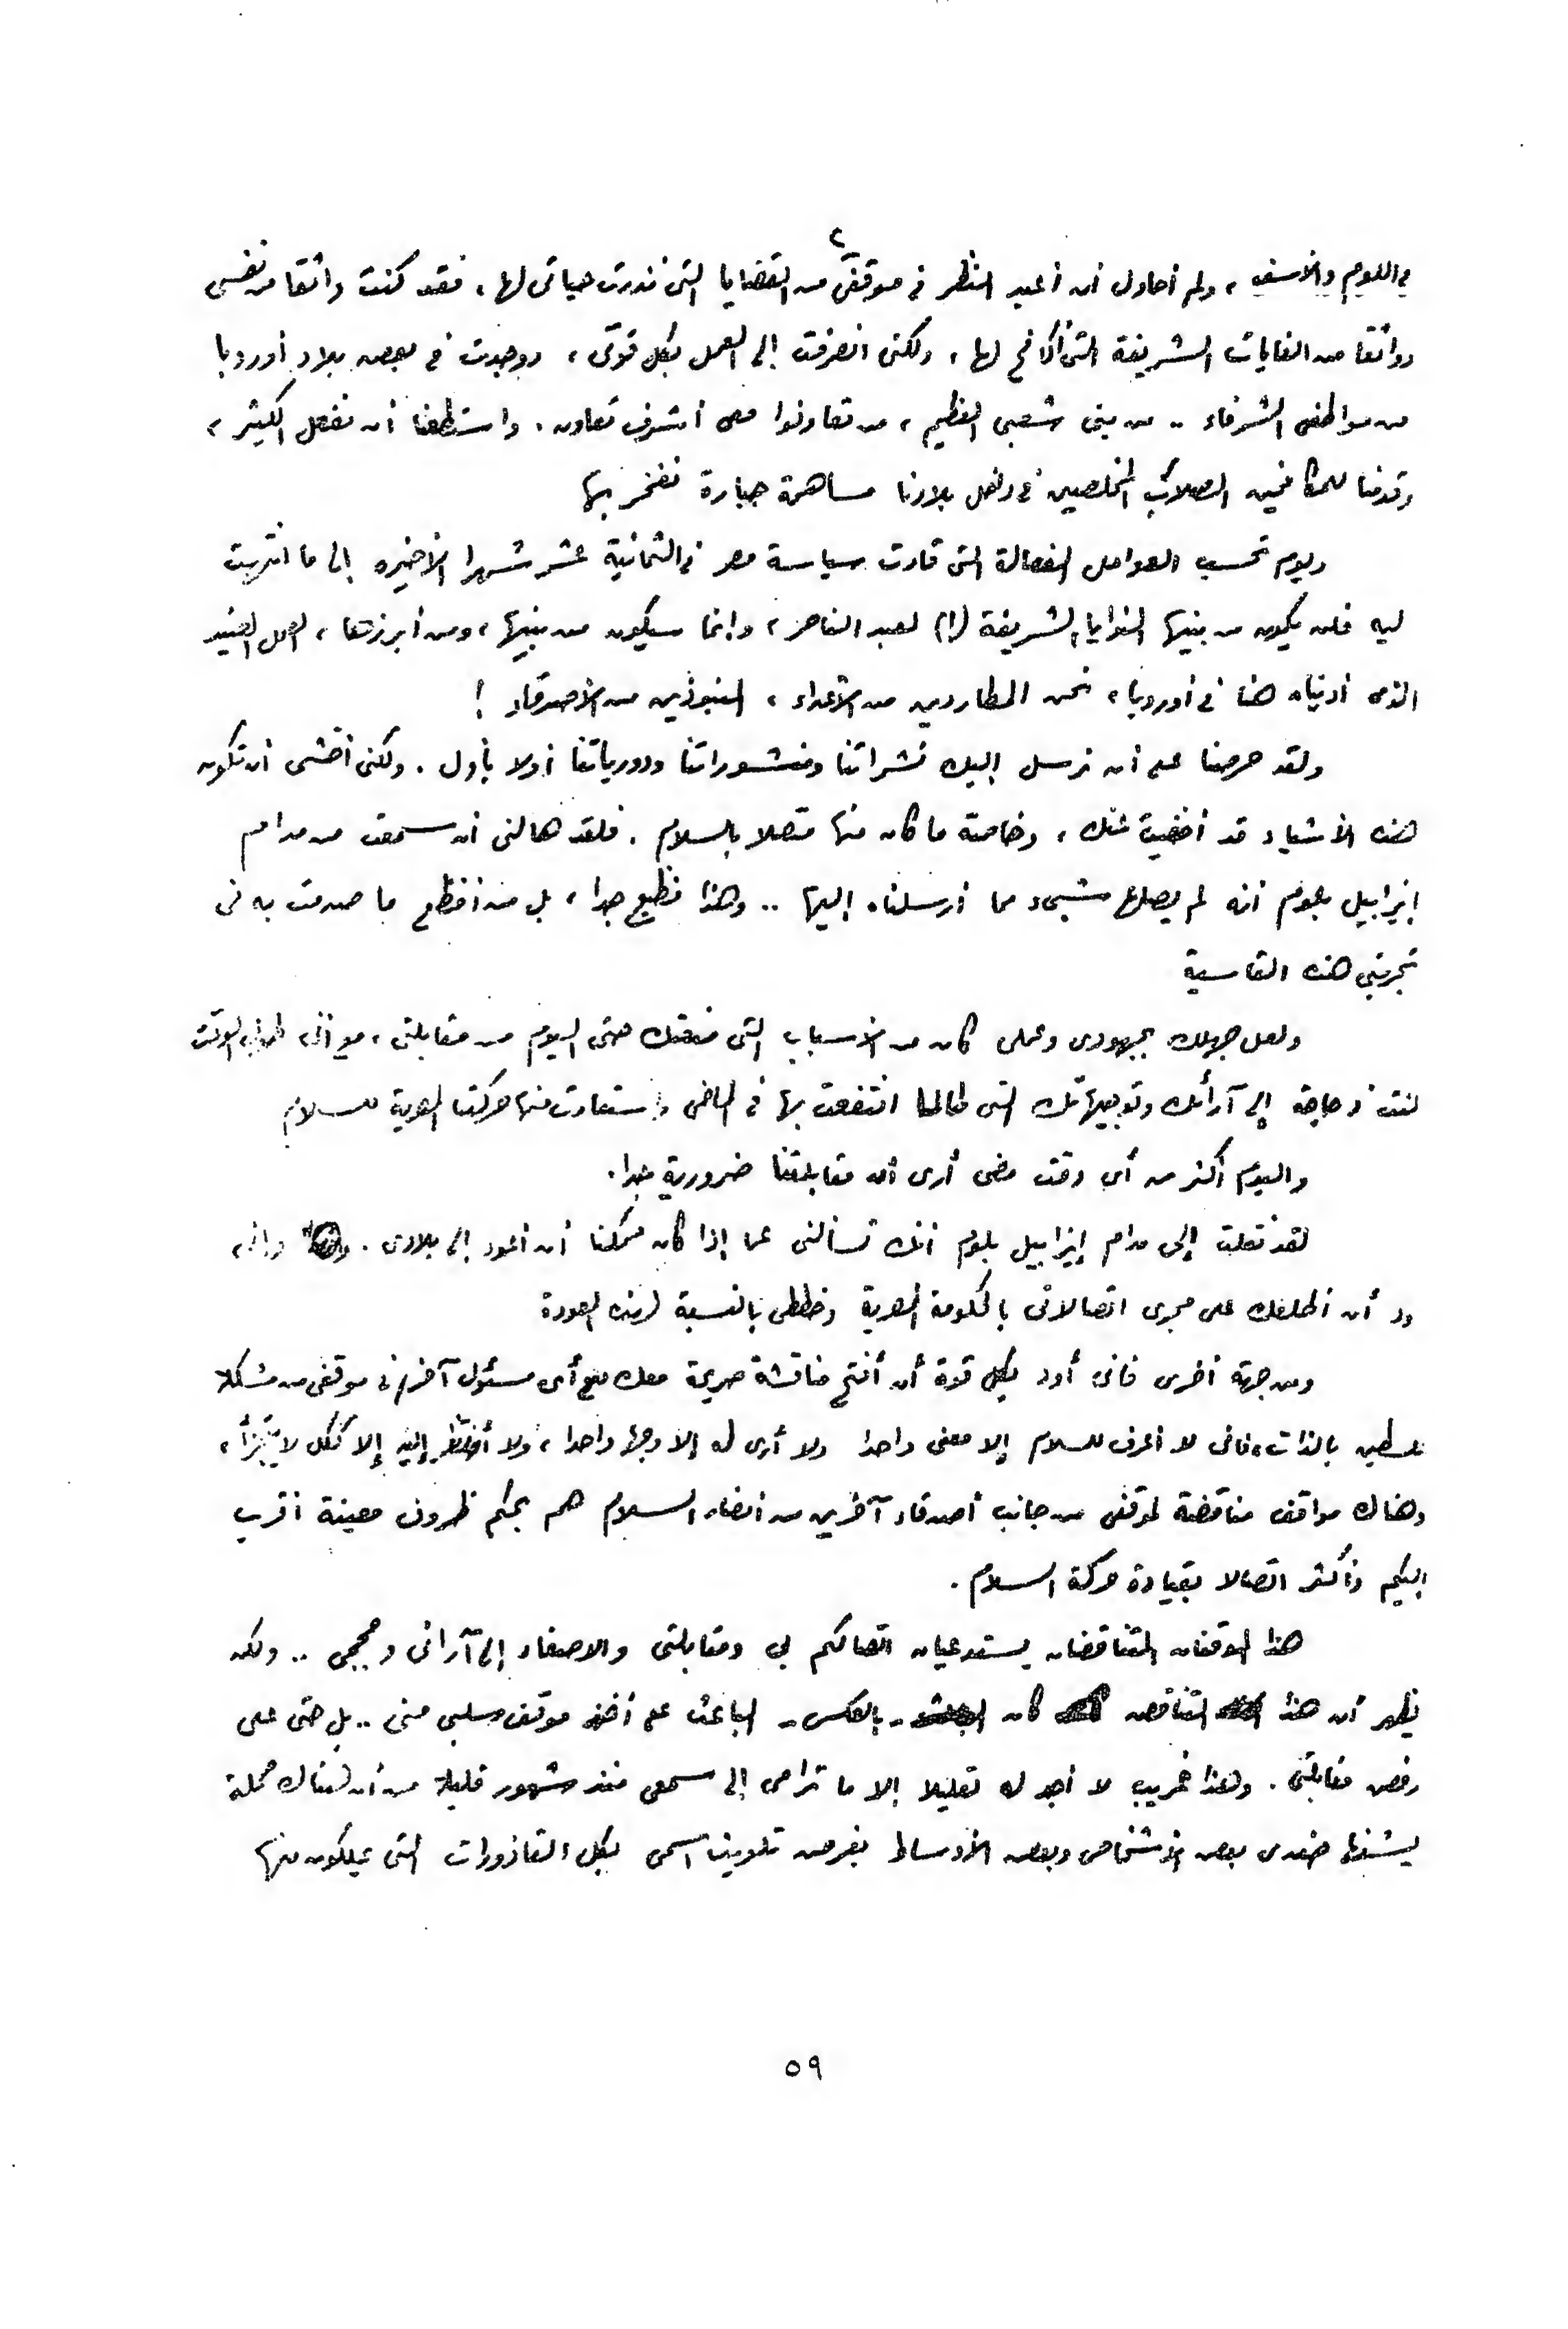 ٢
في اللوم والأسف ، ولم أحاول أن أعيد النظر في موقفي من القضايا التي نذرت حياتي لها ، فقد كنت واثقا من نفسي
وواثقا من الغايات الشريفة التي أكافح لها ، ولكني انصرفت إلى العمل بكل قوتي ، ووجدت في بعض بلاد أوروبا
من مواطني الشرفاء .. من بني شعبي العظيم ، من تعاونوا معي أشرف تعاون . واستطعنا أن نفعل الكثير ،
وقدمنا للمكافحين الصلاب المخلصين في داخل بلادنا مساهمة جبارة نفخر بها
ويوم تحسب العوامل الفعالة التي قادت سياسة مصر في الثمانية عشر شهرا الأخيرة إلى ما انتهت
ليه فلن يكون من بينها النوايا الشريفة (!) لعبد الناصر ، وإنما سيكون من بينها ، ومن أبرزها ، العمل العنيد
الذي أديناه هنا في أوروبا ، نحن المطاردين من الأعداء ، المنبوذين من الأصدقاء !
ولقد حرصنا على أن نرسل إليك نشراتنا ومنشوراتنا ودورياتنا أولا بأول . ولكني أخشى أن تكون
هذه الأشياء قد أخفيت عنك ، وخاصة ما كان منها متصلا بالسلام . فلقد هالني أن سمعت من مدام
إيزابيل بلوم أنه لم يصلها شيء مما أرسلناه إليها .. وهذا فظيع جدا ، بل من أفظع ما صدمت به في
تجربتي هذه القاسية
ولعل جهلك بجهودي وعملي كان من الأسباب التي منعتك حتى اليوم من مقابلتي ، مع أني طوال الوقت
كنت في حاجة إلى آرائك وتوجيهاتك التي طالما انتفعت بها في الماضي واستفادت منها حركتنا المصرية للسلام
واليوم أكثر من أي وقت مضى أرى أن مقابلتنا ضرورية جدا .
لقد نقلت إلى مدام إيزابيل بلوم أنك تسألني عما إذا كان ممكنا أن أعود إلى بلادي . وإني
ود أن أطلعك على مجرى اتصالاتي بالحكومة المصرية وخططي بالنسبة لهذه العودة
ومن جهة أخرى فإني أود بكل قوة أن أفتح مناقشة صريحة معك مع أي مسئول آخر في موقفي من مشكلة
فلسطين بالذات ، فاني لا أعرف للسلام إلا معنى واحدا ولا أرى له إلا وجها واحدا ، ولا أنظر إليه إلا ككل لا يتجزأ ،
وهناك مواقف مناقضة لموقفي من جانب أصدقاء آخرين من أنصار السلام هم بحكم ظروف معينة أقرب
إليكم وأكثر اتصالا بقيادة حركة السلام .
هذا الموقفان المتناقضان يستدعيان اتصالكم بي ومقابلتي والاصغاء إلى آرائي وحججي .. ولكن
يظهر أن هذا التناقض كان - بالعكس - الباعث على أخذ موقف سلبي مني .. بل حتى على
رفض مقابلتي . وهذا غريب لا أجد له تعليلا إلا ما ترامى إلى سمعي منذ شهور قليلة من أن هناك حملة
يشنها ضدي بعض الأشخاص وبعض الأوساط بغرض تلويث اسمي بكل القاذورات التي يملكون منها
٥٩